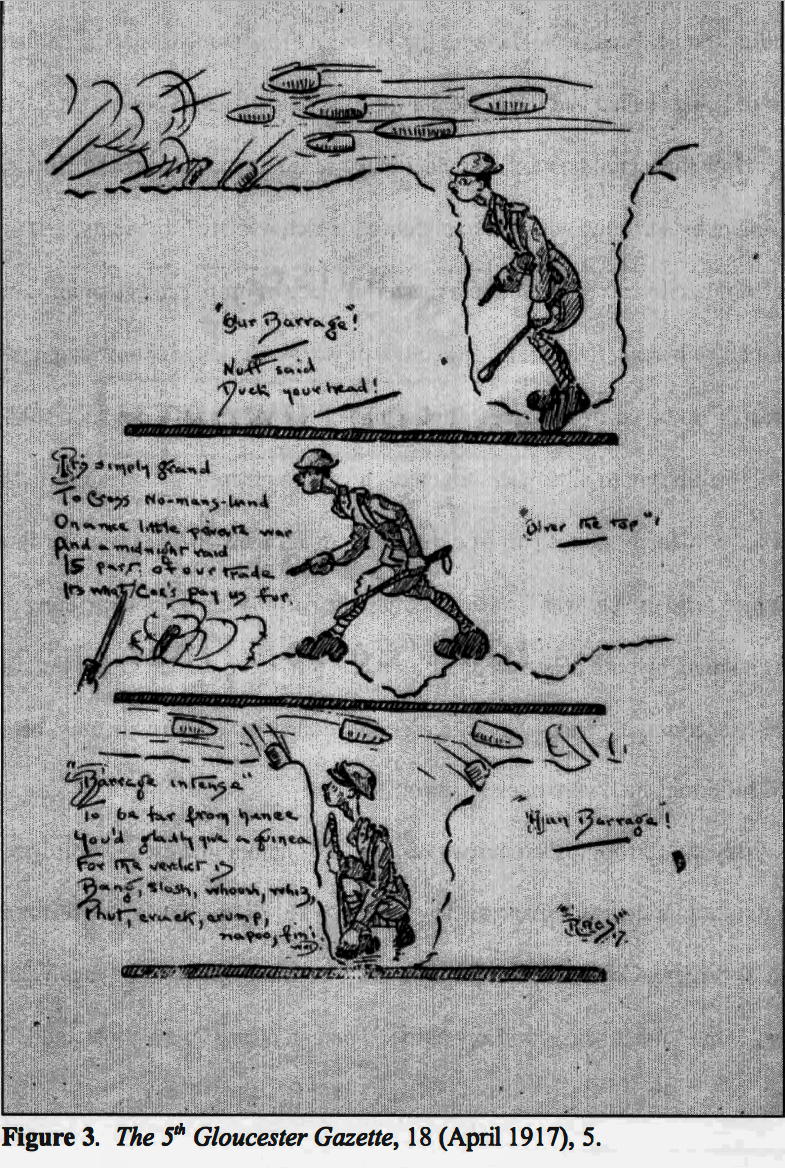 "Our Barrage"!
Nuff said
Duck your head!
It's simply grand
To Cross No-mans-land
On a nice little private war
And a midnight raid
Is part of our trade
Its what Cox's pay us for.
"Over the top"!
"Barrage intense"
To be far from hence
You'd gladly give a guinea
For the verdict is
Bang, slosh, whoosh, whiz,
Phut, cruck, crump,
napoo, fini.
"Hun Barrage"!
Figure 3. The 5th Gloucester Gazette, 18 (April 1917), 5.